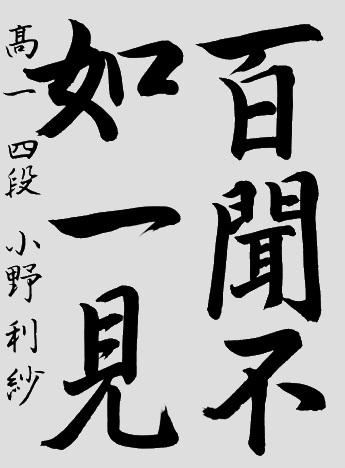 百聞不
如一見
高一 四段 小野利紗